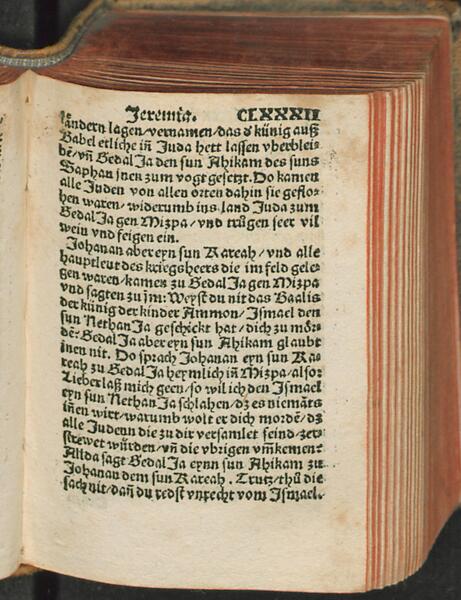 Jeremia. CLXXXII
ländern lagen/vernamen/das d künig auß
Babel etliche iñ Juda hett lassen vberblei-
bē/vñ GedalJa den sun Ahikam des suns
Saphan jnen zum vogt gesetzt. Do kamen
alle Juden von allen orten dahin sie geflo-
hen waren/widerumb ins land Juda zum
GedalJa gen Mizpa/vnd trůgen seer vil
wein vnd feigen ein.
Johanan aber eyn sun Kareah/vnd alle
hauptleut des kriegsheers die im feld gele-
gen waren/kamen zu GedalJa gen Mizpa
vnd sagten zu jm: Weyst du nit das Baalis
der künig der kinder Ammon/Ismael den
sun NethanJa geschickt hat/dich zu mör-
dē: GedalJa aber eyn sun Ahikam glaubt
inen nit. Do sprach Johanan eyn sun Ka-
reah zu GedalJa heymlich iñ Mizpa/also:
Lieber laß mich geen/so wil ich den Ismael
eyn sun NethanJa schlahen/dz es niemāts
iñen wirt/warumb wolt er dich mordē/dz
alle Judenn die zu dir versamlet seind/zer-
strewet würden/vñ die vbrigen vm̄kemen:
Aber da sagt GedalJa eynn sun Ahikam zu
Johanan dem sun Kareah. Trutz/thů die
sach nit/dañ du redst vnrecht vom Ismael.